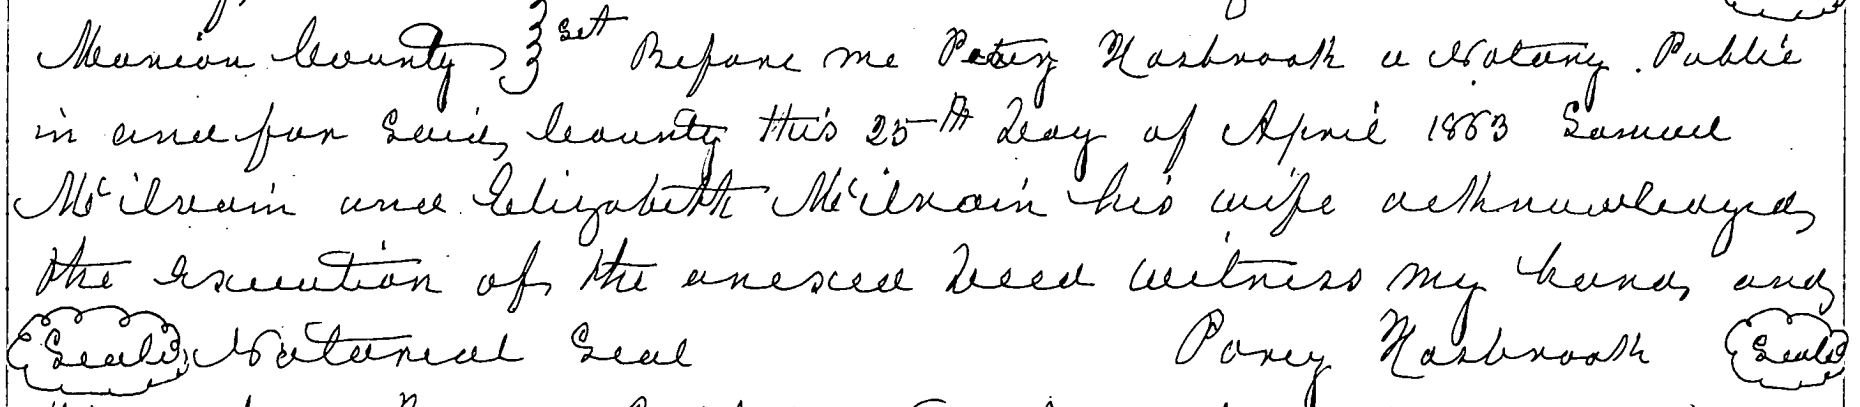 Marion County } Sct Before me Perry Hasbrook a Notary Public
in and for Said County this 25th Day of April 1863 Samuel
McIlvain and Elizabeth McIlvain his wife acknowledged
the execution of the anexed Deed witness my hand and
Seal Notarial Seal Perry Hasbrook Seal